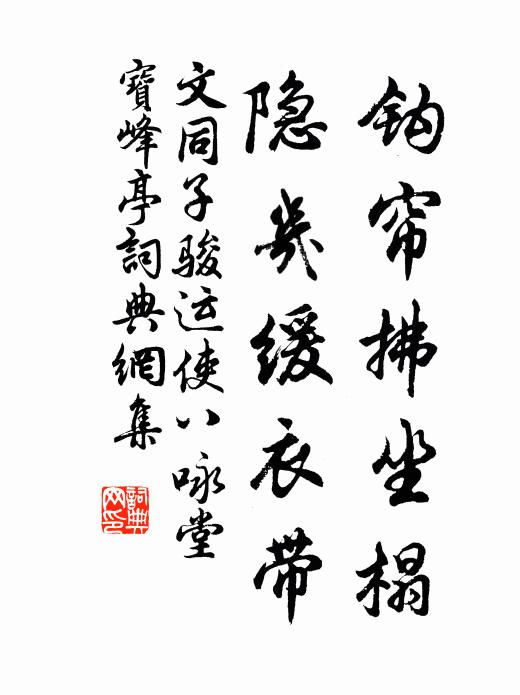 钩帘拂坐榻
隐几缓衣带
文同子骏运使八咏堂
寶峰亭詞典網集
詞典网印